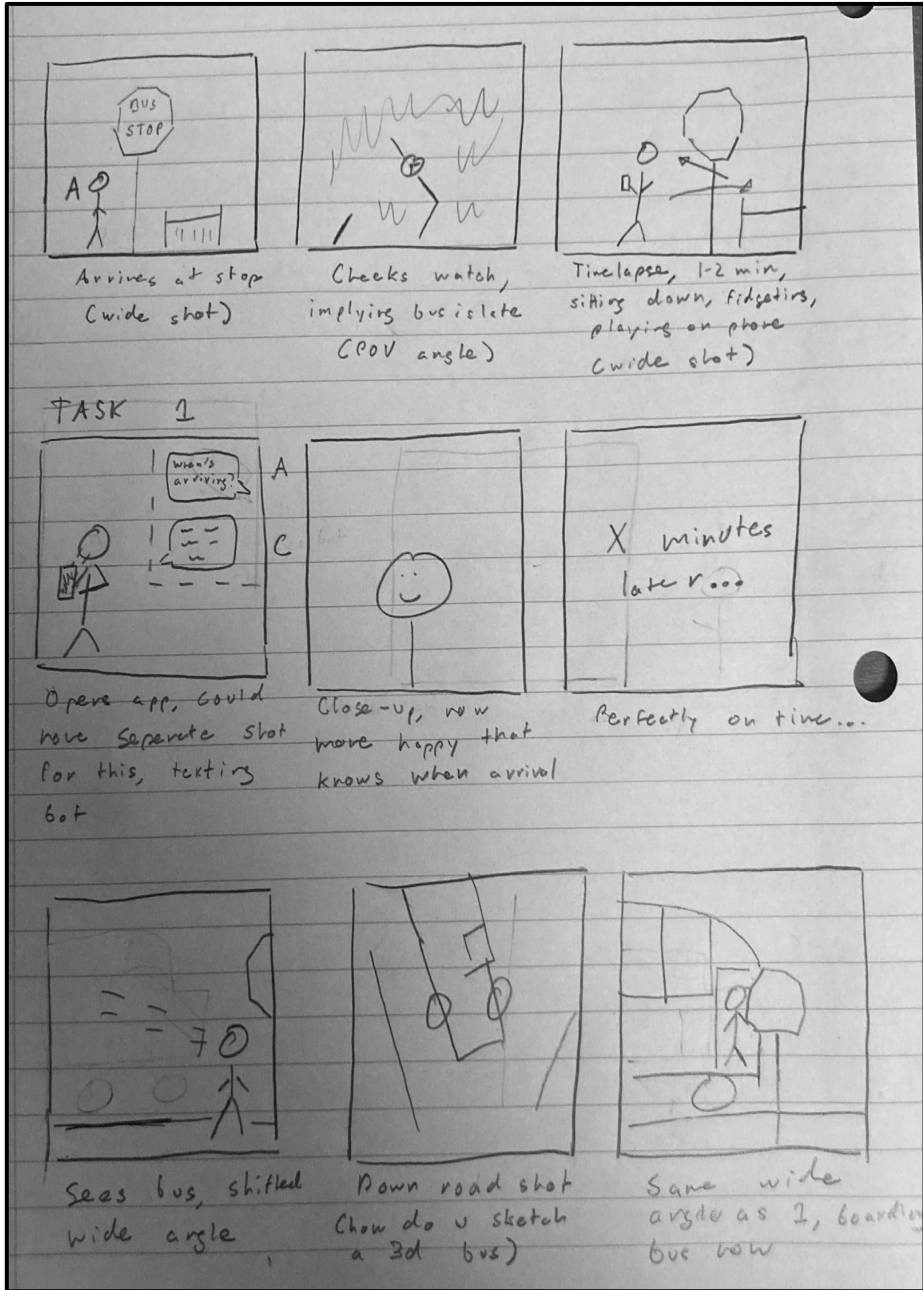 BUS
STOP
A
Arrives at stop
(wide shot)
Checks watch,
implying bus is late
(POV angle)
Timelapse, 1-2 min,
sitting down, fidgeting,
playing on phone
(wide shot)
TASK 1
when's
arriving?
A
C
Opens app, could
have separate shot
for this, texting
bot
Close-up, now
more happy that
knows when arrival
X minutes
later...
Perfectly on time...
Sees bus, shifted
wide angle
Down road shot
(how do u sketch
a 3d bus)
Same wide
angle as 1, boarding
bus now